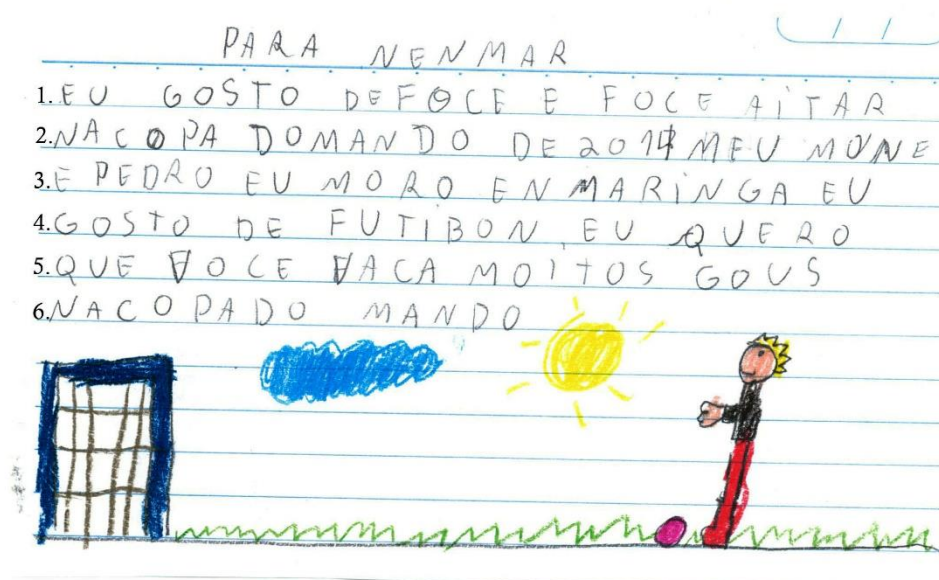 PARA NENMAR
1. EU GOSTO DEFOCE E FOCE AITAR
2. NA COPA DOMANDO DE 2014 MEU MUNE
3. E PEDRO EU MORO EN MARINGA EU
4. GOSTO DE FUTIBON, EU QUERO
5. QUE VOCE VACA MOITOS GOUS
6. NA COPADO MANDO